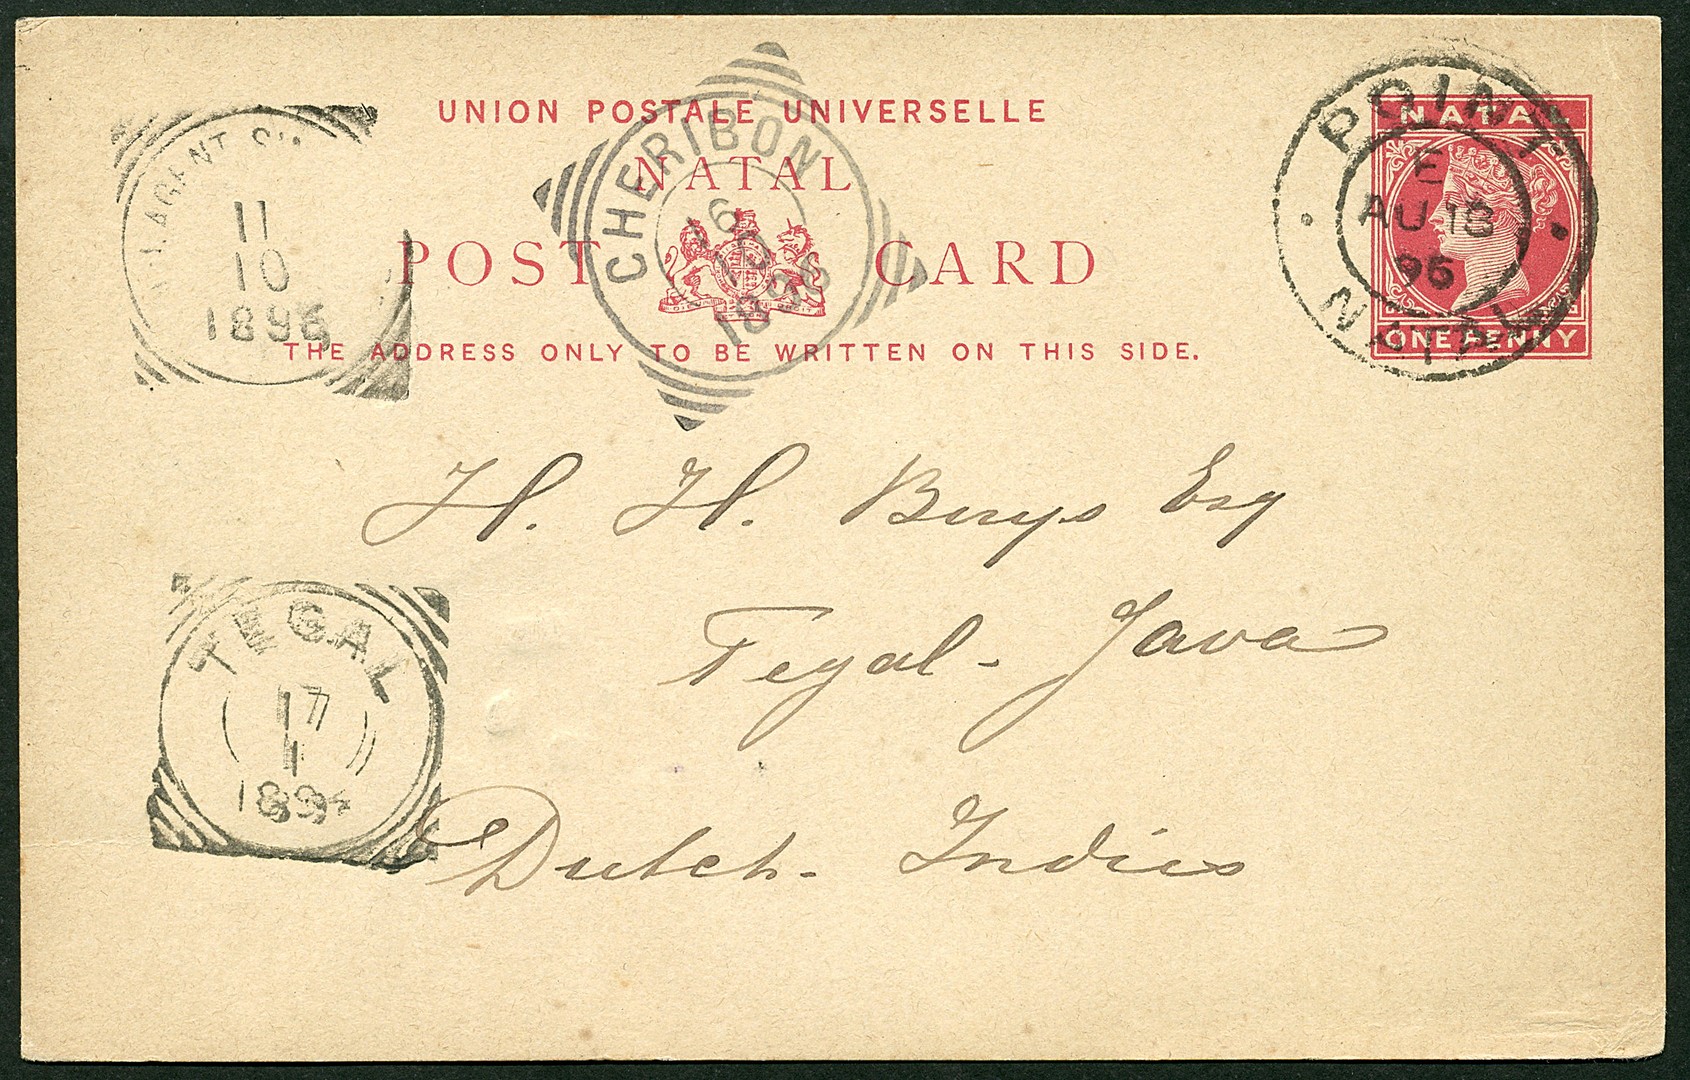 UNION POSTALE UNIVERSELLE
NATAL
POST CARD
THE ADDRESS ONLY TO BE WRITTEN ON THIS SIDE.
NATAL
ONE PENNY
POINT
E
AU 18
95
NATAL
CHERIBON
16
10
11
10
TEGAL
17
H. H. Buys Esq
Tegal - Java
Dutch - Indies